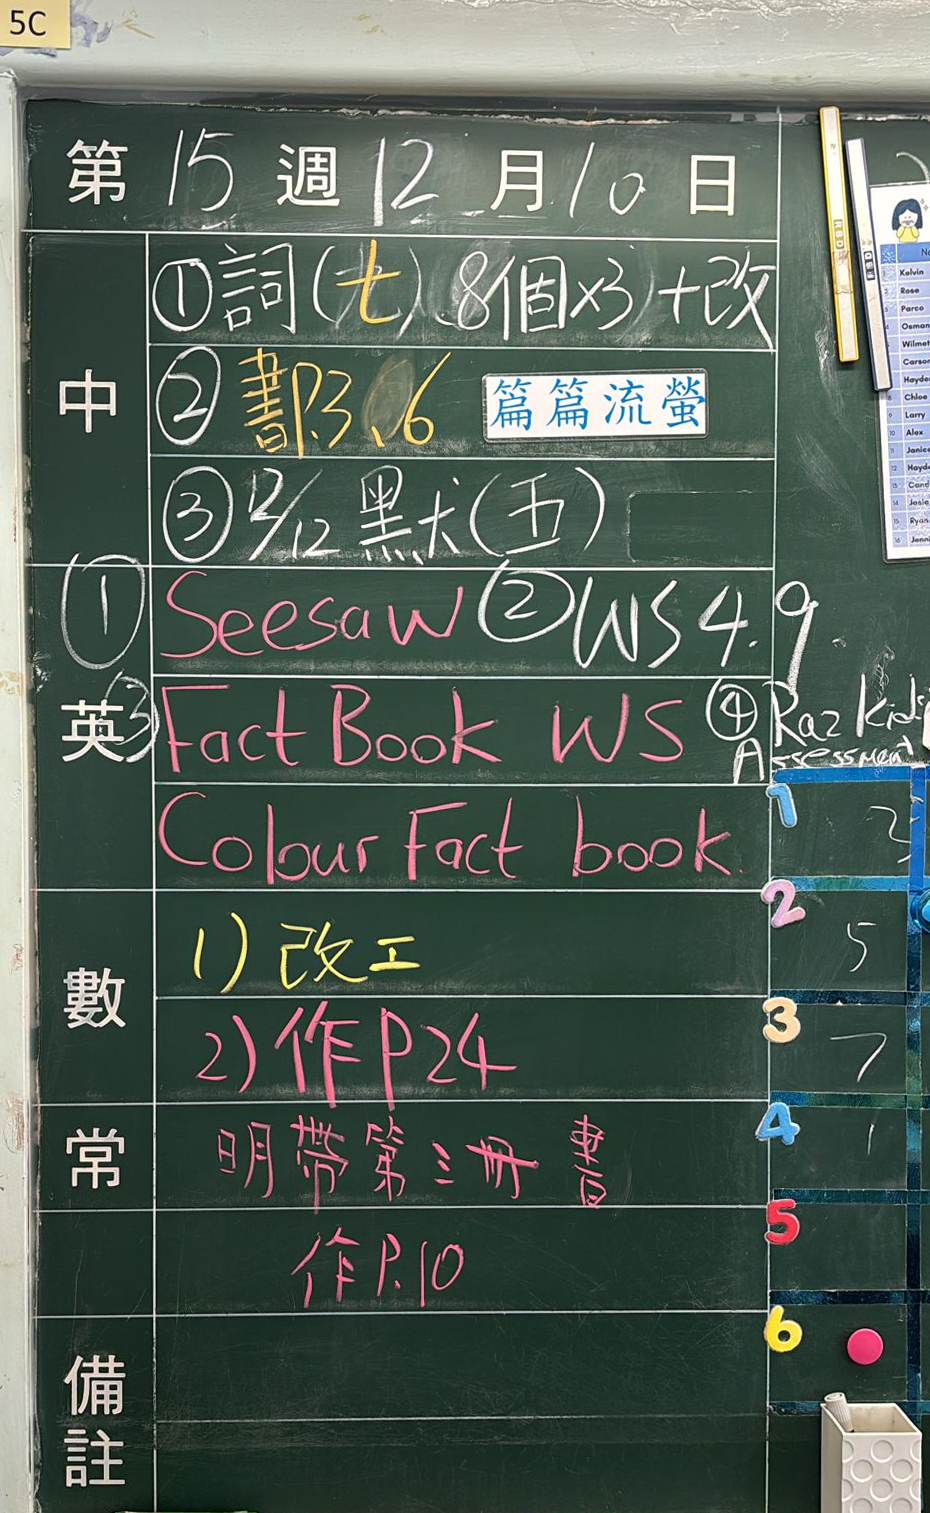 5C
第 15 週 12 月 10 日
中
① 詞(七) 8個x3 +改
② 書P.3、6 篇篇流螢
③ 12/12 默(五)
英
① Seesaw ② WS 4.9
③ Fact Book WS ④ Raz Kids Assessment
Colour Fact book.
數
1) 改工
2) 作 P24
常
明 帶 第 三 冊 書
作 P.10
備註
1 3
2 5
3 7
4 1
5
6
Kelvin
Rose
Parco
Osman
Wilmet
Carson
Hayde
8 Chloe
9 Larry
10 Alex
11 Janice
12 Hayd
13 Cand
14 Josie
15 Ryan
16 Jenni